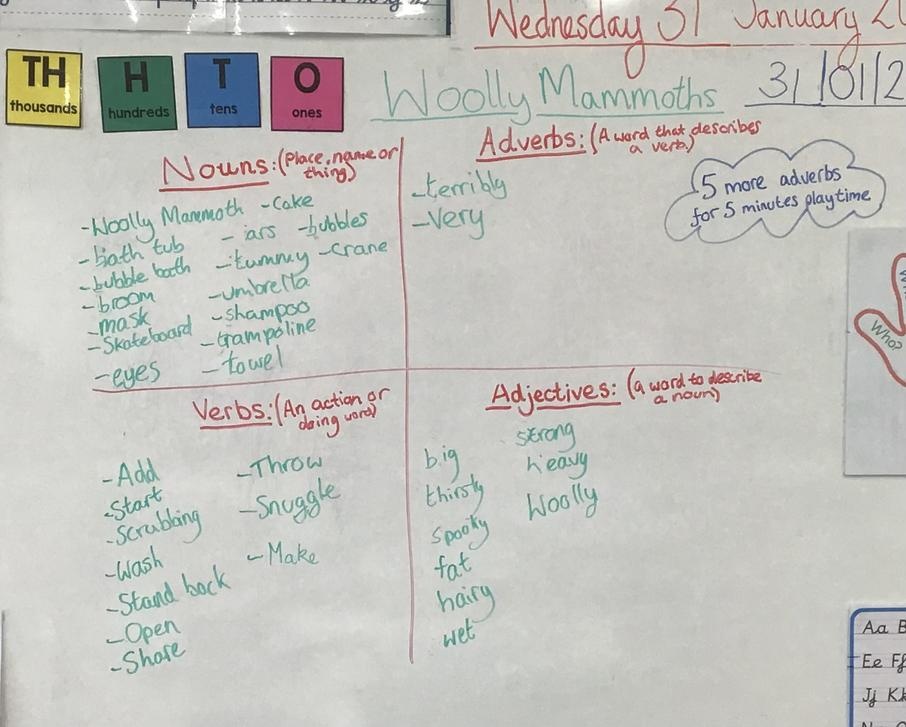 Wednesday 31 January
TH
thousands
H
hundreds
T
tens
O
ones
Woolly Mammoths
31/01/2
Nouns: (Place, name or
thing)
-Woolly Mammoth -Cake
-bath tub - jars -bubbles
-bubble bath -tummy -crane
-broom -umbrella
-mask -shampoo
-Skateboard -trampoline
-eyes -towel
Adverbs: (A word that describes
a verb)
-terribly
-Very
5 more adverbs
for 5 minutes playtime
Who?
Verbs: (An action or
doing word)
-Add -Throw
-Start
-Scrubbing -Snuggle
-Wash -Make
-Stand back
-Open
-Share
Adjectives: (a word to describe
a noun)
big strong
thirsty heavy
spooky Woolly
fat
hairy
wet
Aa B
Ee Ff
Jj Kk